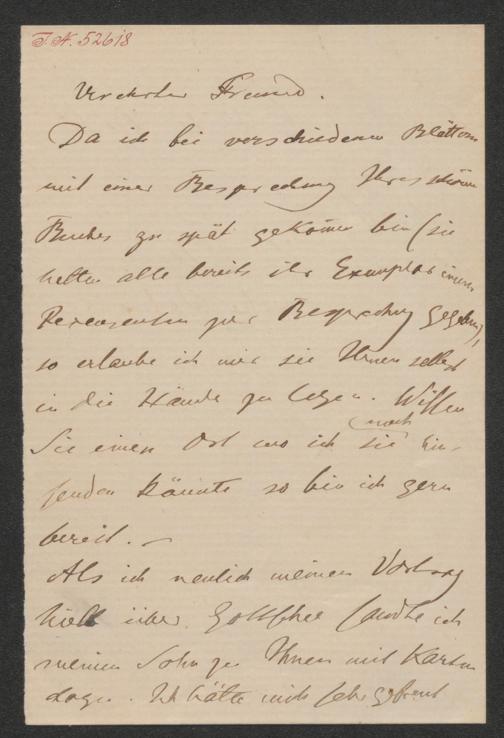 I.N. 52618
Verehrter Freund.
Da ich bei verschiedenen Blättern
mit einer Besprechung Ihres schönen
Buches zu spät gekommen bin (sie
hatten alle bereits ihr Exemplar einem
Recensenten zur Besprechung gegeben),
so erlaube ich mir sie Ihnen selbst
in die Hände zu legen. Wissen
Sie einen Ort wo ich sie noch ein-
senden könnte so bin ich gern
bereit. —
Als ich neulich meinen Vortrag
hielt über Gottschee sandte ich
meinen Sohn zu Ihnen mit Karten
dazu. Ich hätte mich sehr gefreut